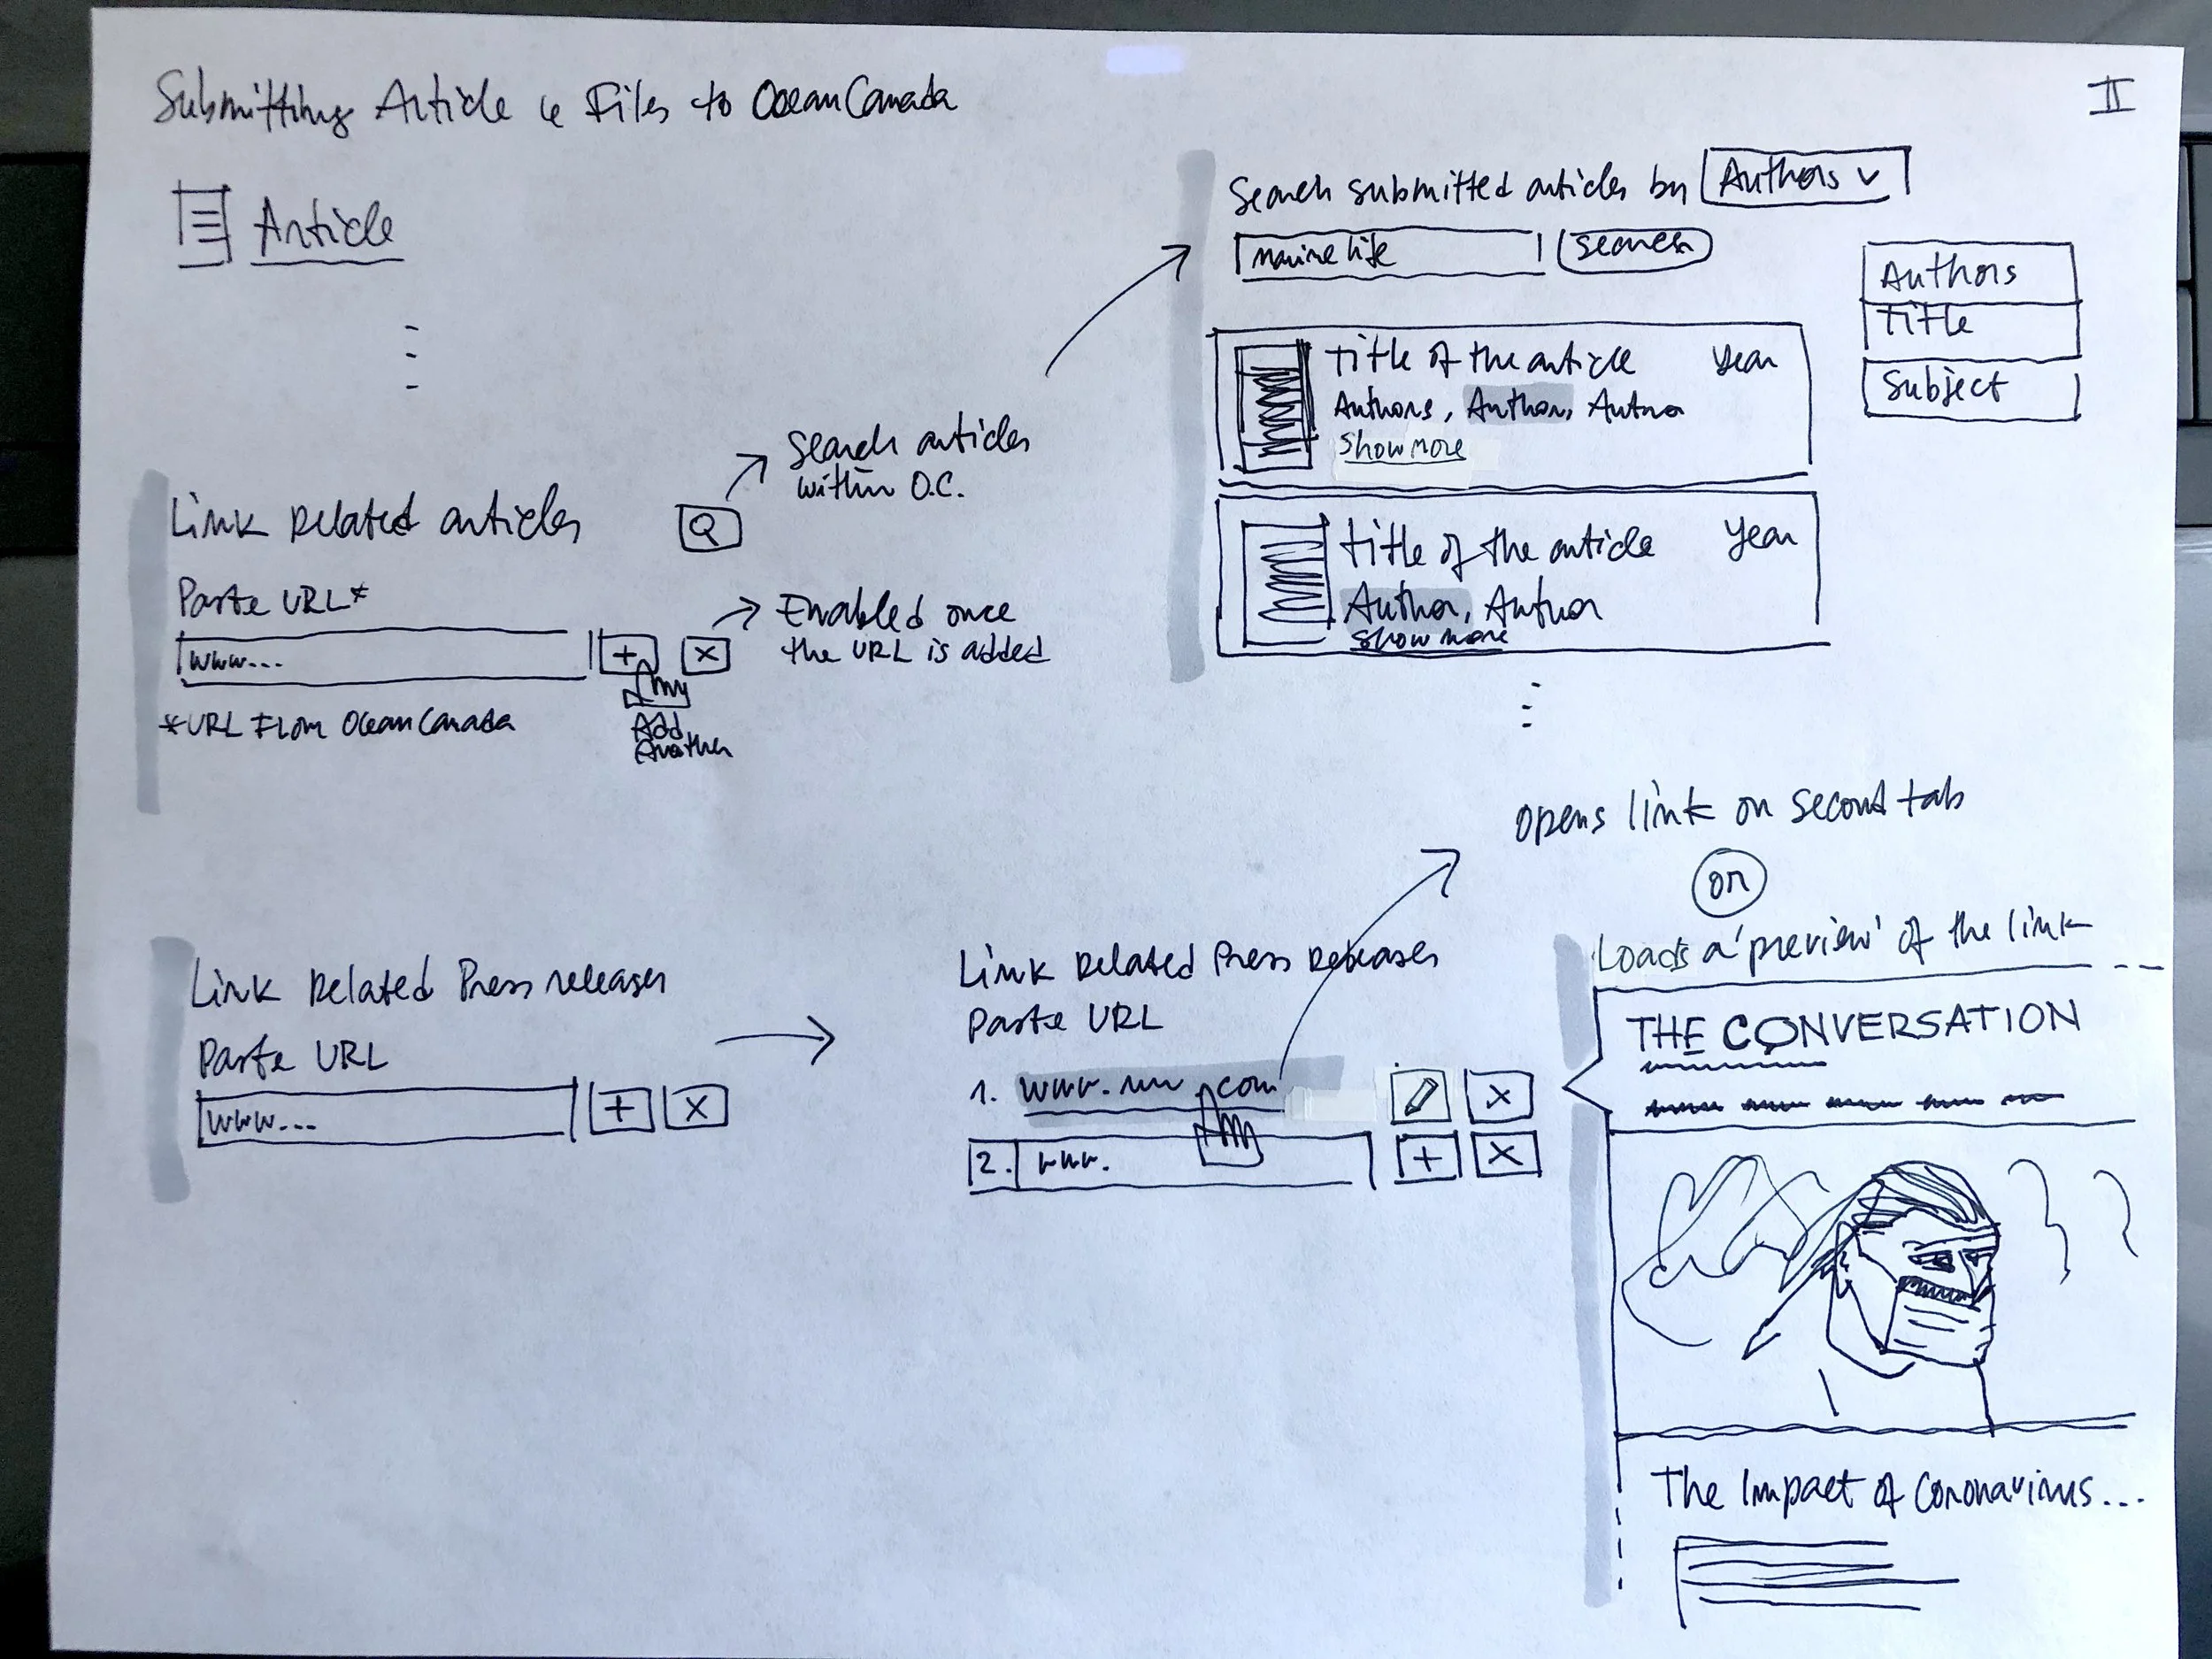 Submitting Article & Files to OceanCanada
II
Article
Link Related articles
Q
Search articles
within O.C.
Paste URL*
www...
+
x
Enabled once
the URL is added
Add
Another
*URL From OceanCanada
Search submitted articles by Authors v
marine life
search
Authors
Title
Subject
Title of the article Year
Authors, Author, Author
Show more
Title of the article Year
Author, Author
Show more
Link Related Press releases
Paste URL
www...
+
x
Link Related Press Releases
Paste URL
1. www. .com
x
2. www.
+
x
opens link on second tab
or
Loads a 'preview' of the link
THE CONVERSATION
The Impact of Coronavirus...